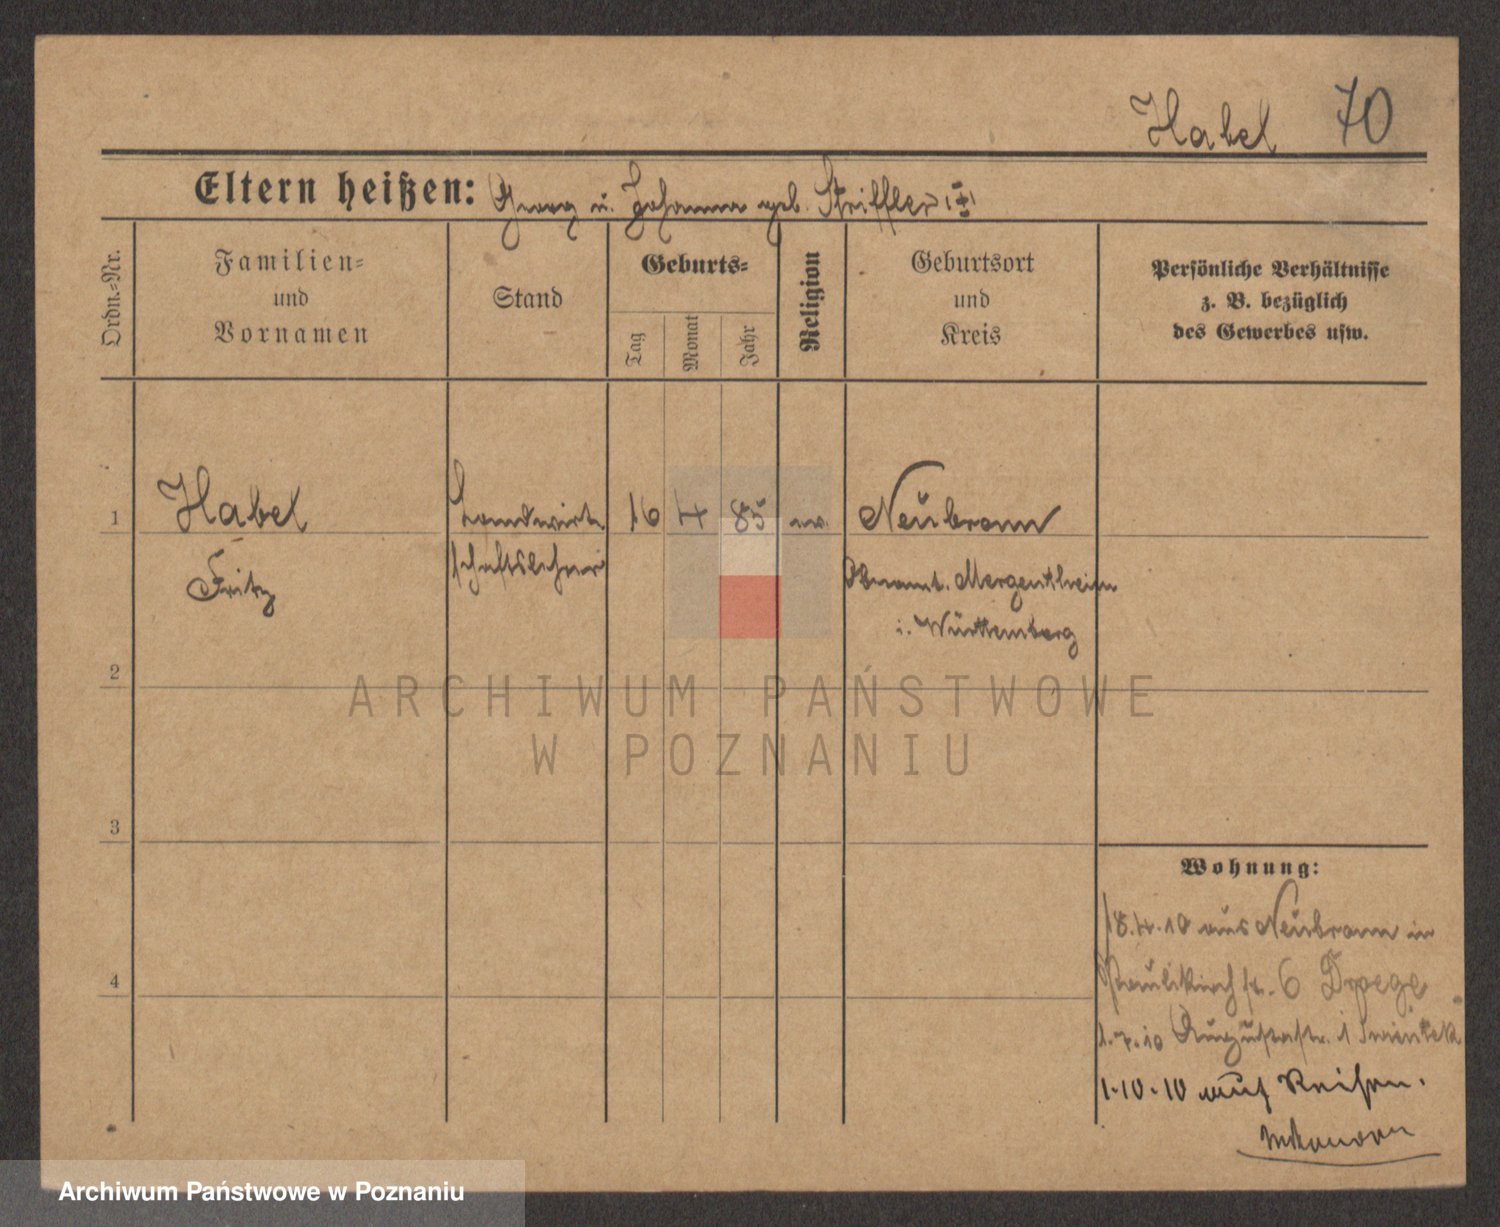 Habel 70
Eltern heißen: Georg u. Johanna geb. Striffler
Ordn.=Nr.
Familien=
und
Vornamen
Stand
Geburts=
Tag
Monat
Jahr
Religion
Geburtsort
und
Kreis
Persönliche Verhältnisse
z. B. bezüglich
des Gewerbes usw.
1 Habel Landwirt= 16 4 85 ev. Neubronn
Fritz schaftslehrer Oberamt. Mergentheim
i. Württemberg
2
3
4
Wohnung:
18.4.10 aus Neubronn in
Paulikirchstr. 6 Droege
1.7.10 Augustastr. 1
1.10.10 auf Reisen.
ARCHIWUM PAŃSTWOWE
W POZNANIU
Archiwum Państwowe w Poznaniu